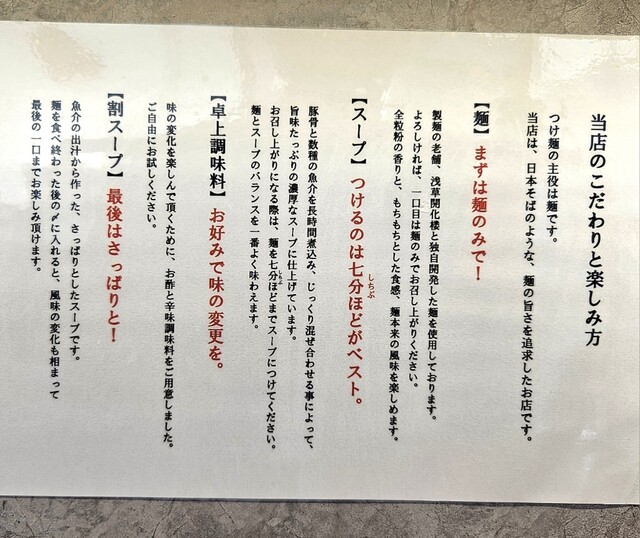 当店のこだわりと楽しみ方
つけ麺の主役は麺です。
当店は、日本そばのような、麺の旨さを追求したお店です。
【麺】まずは麺のみで！
製麺の老舗、浅草開化楼と独自開発した麺を使用しております。
よろしければ、一口目は麺のみでお召し上がりください。
全粒粉の香りと、もちもちとした食感、麺本来の風味を楽しめます。
【スープ】つけるのは七分ほどがベスト。
しちぶ
豚骨と数種の魚介を長時間煮込み、じっくり混ぜ合わせる事によって、
旨味たっぷりの濃厚なスープに仕上げています。
お召し上がりになる際は、麺を七分ほどまでスープにつけてください。
しちぶ
麺とスープのバランスを一番よく味わえます。
【卓上調味料】お好みで味の変更を。
味の変化を楽しんで頂くために、お酢と辛味調味料をご用意しました。
ご自由にお試しください。
【割スープ】最後はさっぱりと！
魚介の出汁から作った、さっぱりとしたスープです。
麺を食べ終わった後の〆に入れると、風味の変化も相まって
最後の一口までお楽しみ頂けます。